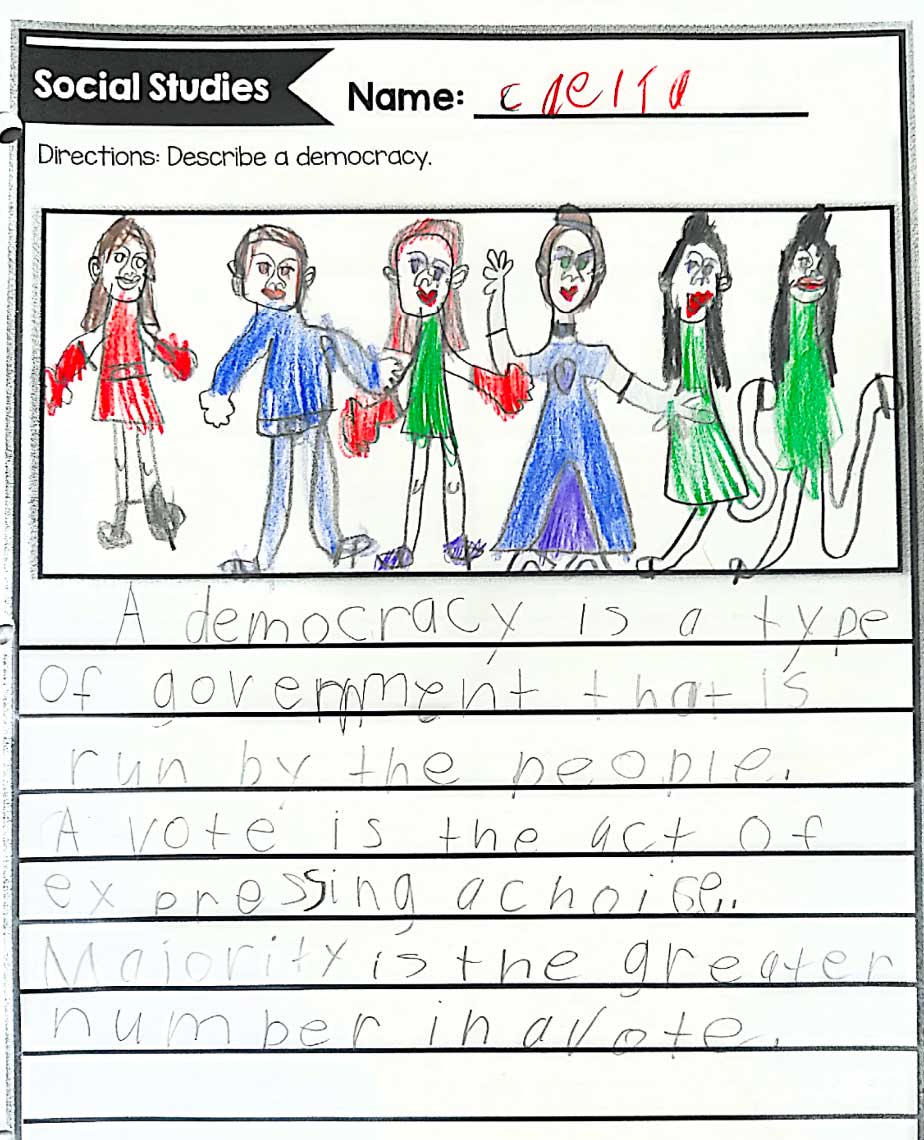 Social Studies
Name:
Directions: Describe a democracy.
A democracy is a type
of government that is
run by the people.
A vote is the act of
expressing a choise.
Majority is the greater
number in a vote.